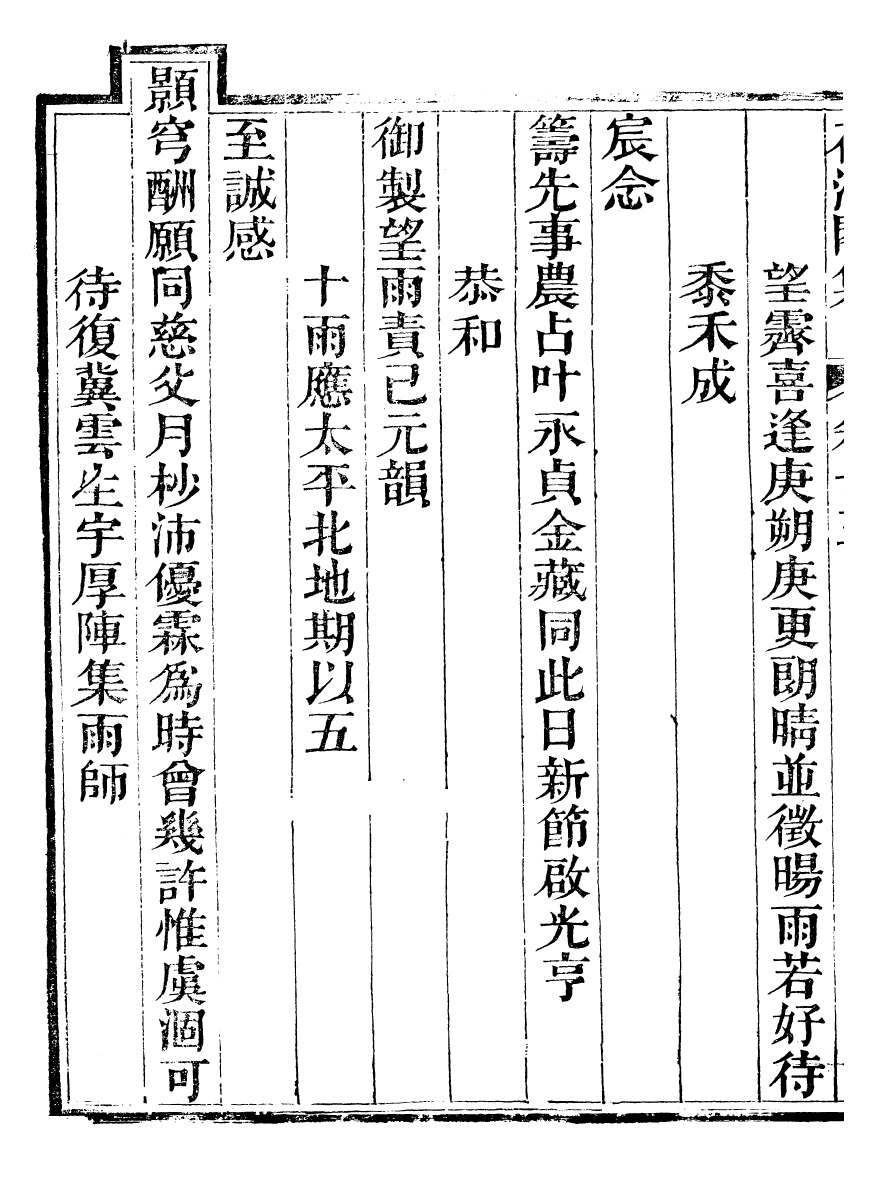 望霽喜逢庚朔庚更朗晴並徵暘雨若好待
黍禾成
宸念
籌先事農占叶永貞金藏同此日新節啟光亨
恭和
御製望雨責己元韻
十雨應太平北地期以五
至誠感
顥穹酬願同慈父月杪沛優霖爲時曾幾許惟虞涸可
待復冀雲生宇厚陣集雨師